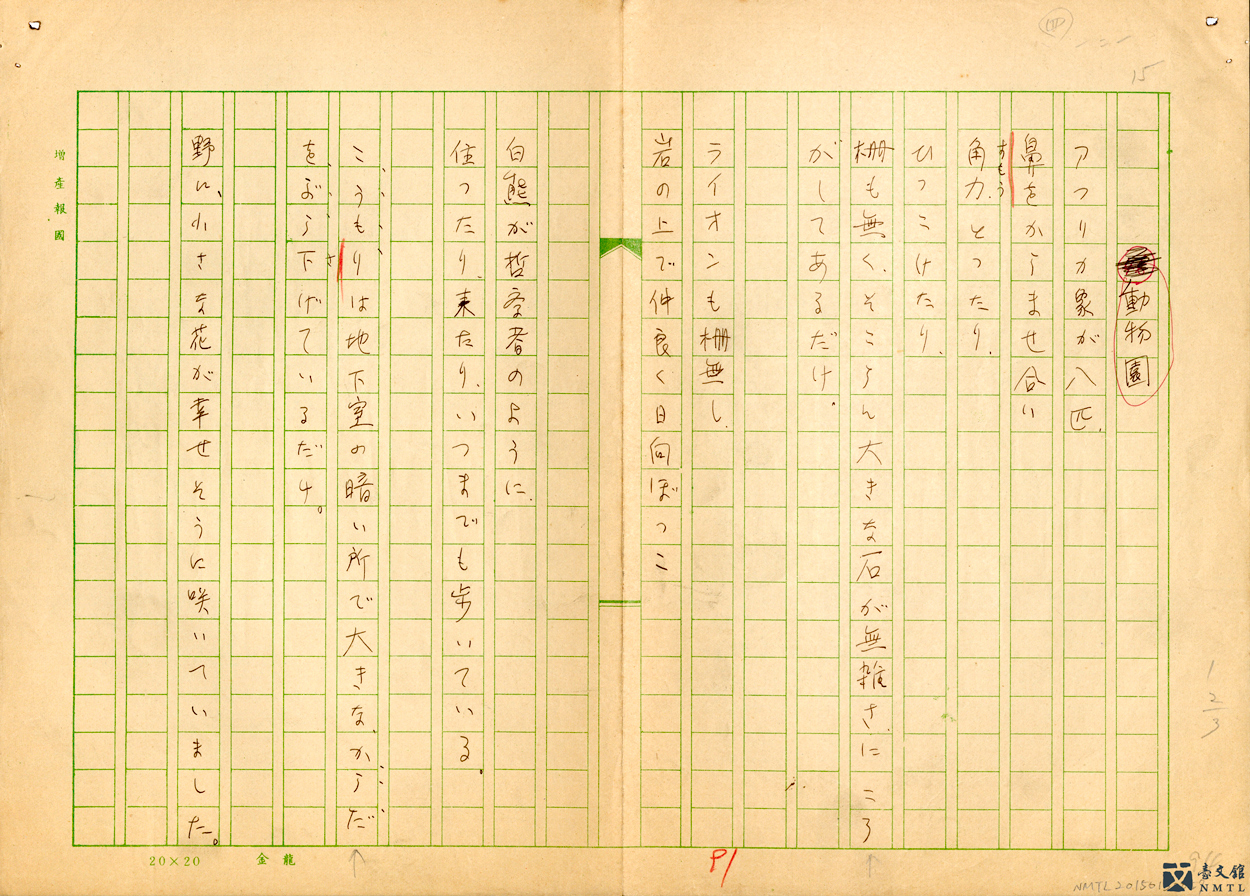 ㊃
15
動物園
アフリカ象が八匹.
鼻をからませ合い
すもう
角力とったり.
ひっこけたり.
柵も無く.そこらん大きな石が無雑さにころ
がしてあるだけ.
ライオンも柵無し.
岩の上で仲良く日向ぼっこ
白熊が哲学者のように.
住ったり.来たり.いつまでも歩いている.
こうもりは地下室の暗い所で大きな、からだ
をぶら下げているだけ。
さ
野に、小さな花が幸せそうに咲いていました。
増産報國
20×20
金龍
P1
1
2
3
臺文館
NMTL